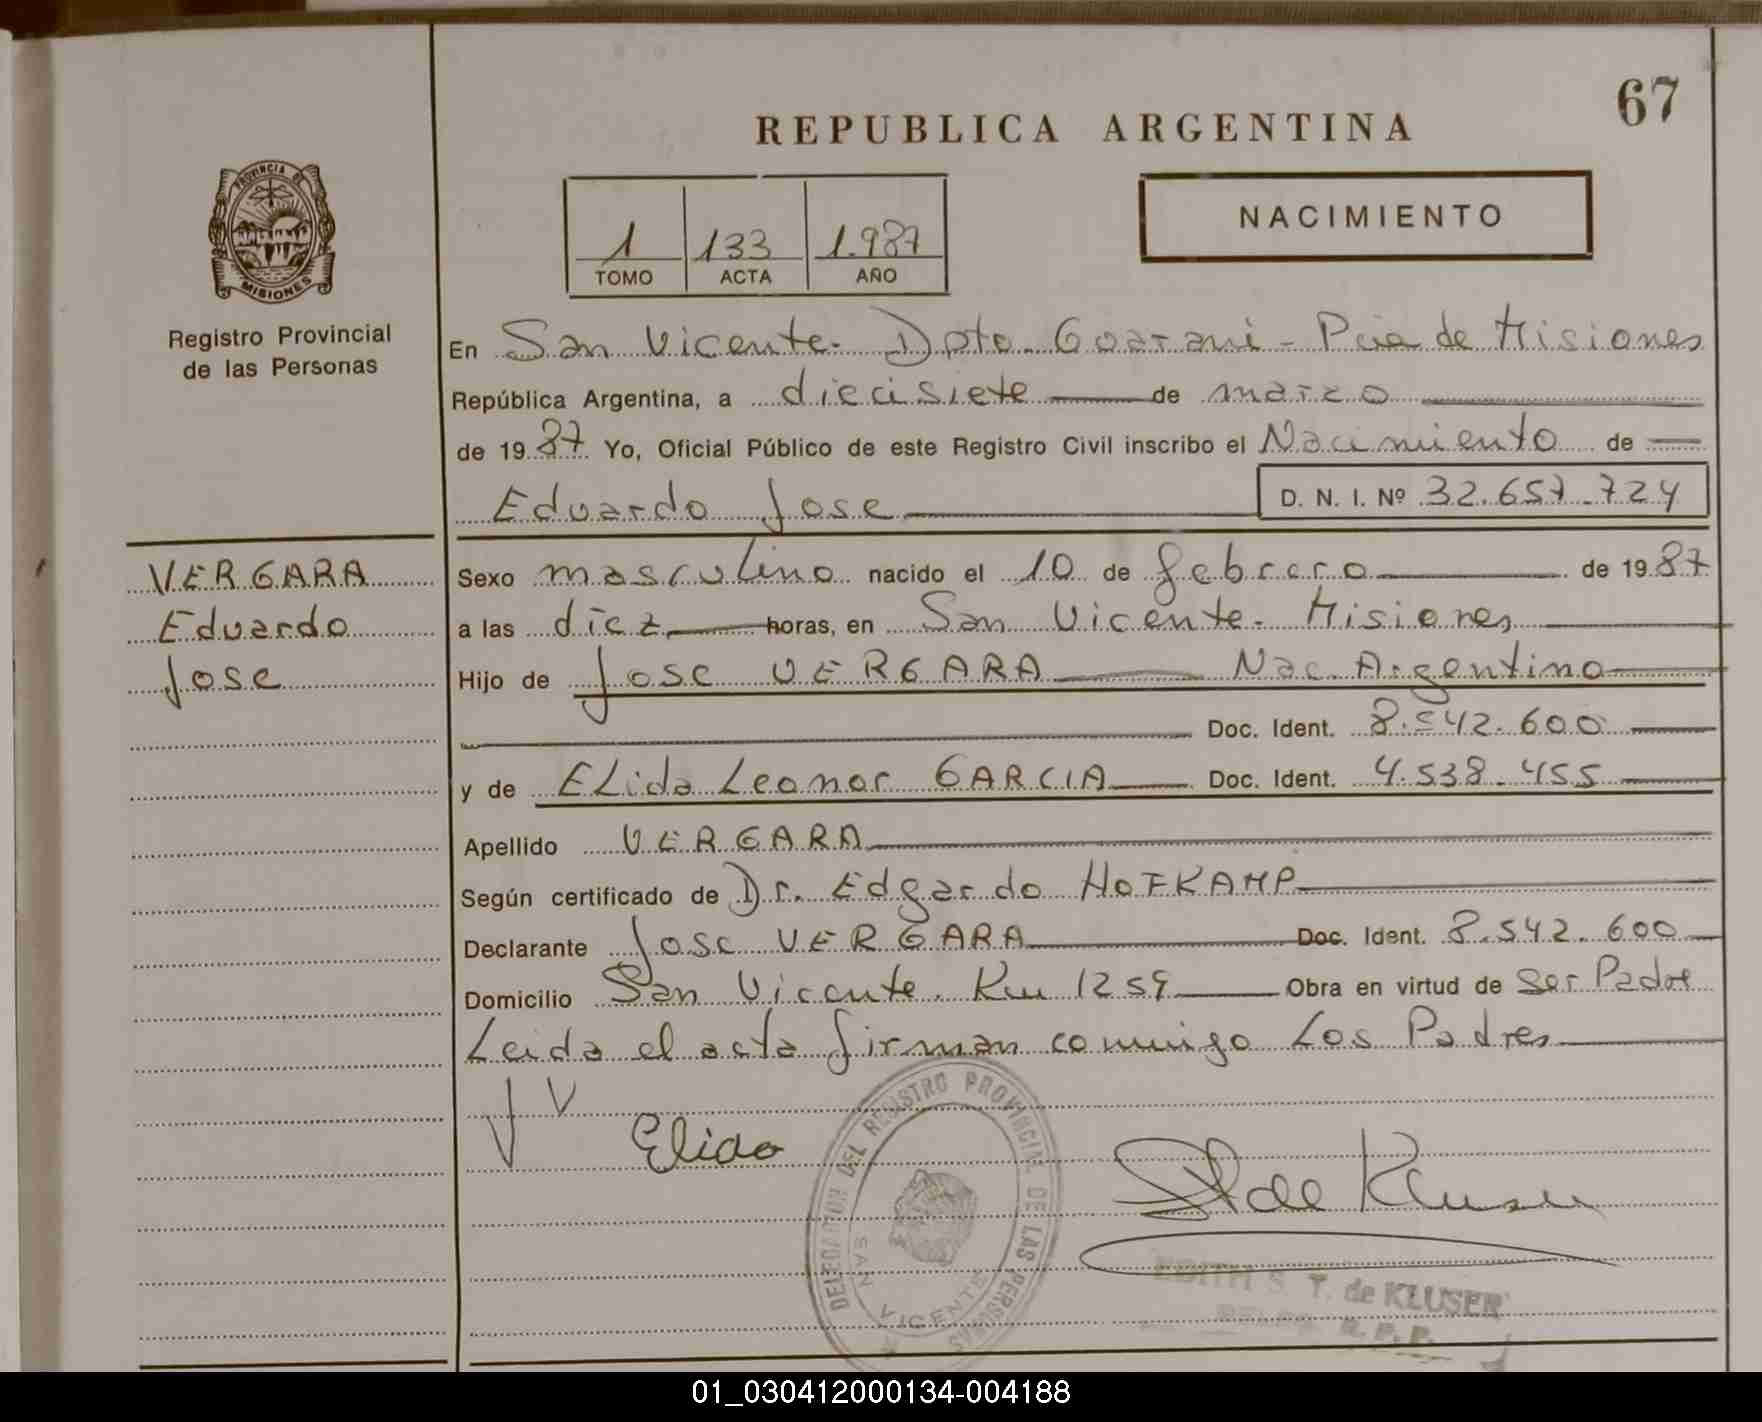 67
REPUBLICA ARGENTINA
PROVINCIA DE
MISIONES
Registro Provincial
de las Personas
1 133 1.987
TOMO ACTA AÑO
NACIMIENTO
En San Vicente. Dpto Guarani - Pcia de Misiones
República Argentina, a diecisiete de marzo
de 1987 Yo, Oficial Público de este Registro Civil inscribo el Nacimiento de
Eduardo Jose D. N. I. Nº 32.657.724
VERGARA
Eduardo
Jose
Sexo masculino nacido el 10 de febrero de 1987
a las diez horas, en San Vicente. Misiones
Hijo de Jose VERGARA Nac. Argentino
Doc. Ident. 8.542.600
y de Elida Leonor GARCIA Doc. Ident. 4.538.455
Apellido VERGARA
Según certificado de Dr. Edgardo HOFKAMP
Declarante Jose VERGARA Doc. Ident. 8.542.600
Domicilio San Vicente. Km 1259 Obra en virtud de Ser Padre
Leida el acta firman conmigo Los Padres
J V
Elida
de Kluser
DELEGACION DEL REGISTRO PROVINCIAL DE LAS PERSONAS
SAN VICENTE
EDITH S. T. de KLUSER
R. P. P.
01_030412000134-004188